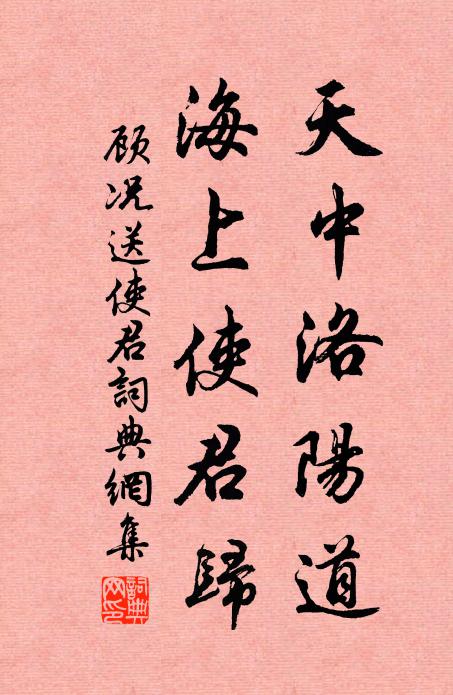 天中洛陽道
海上使君歸
顾况送使君詞典網集
詞典
网印